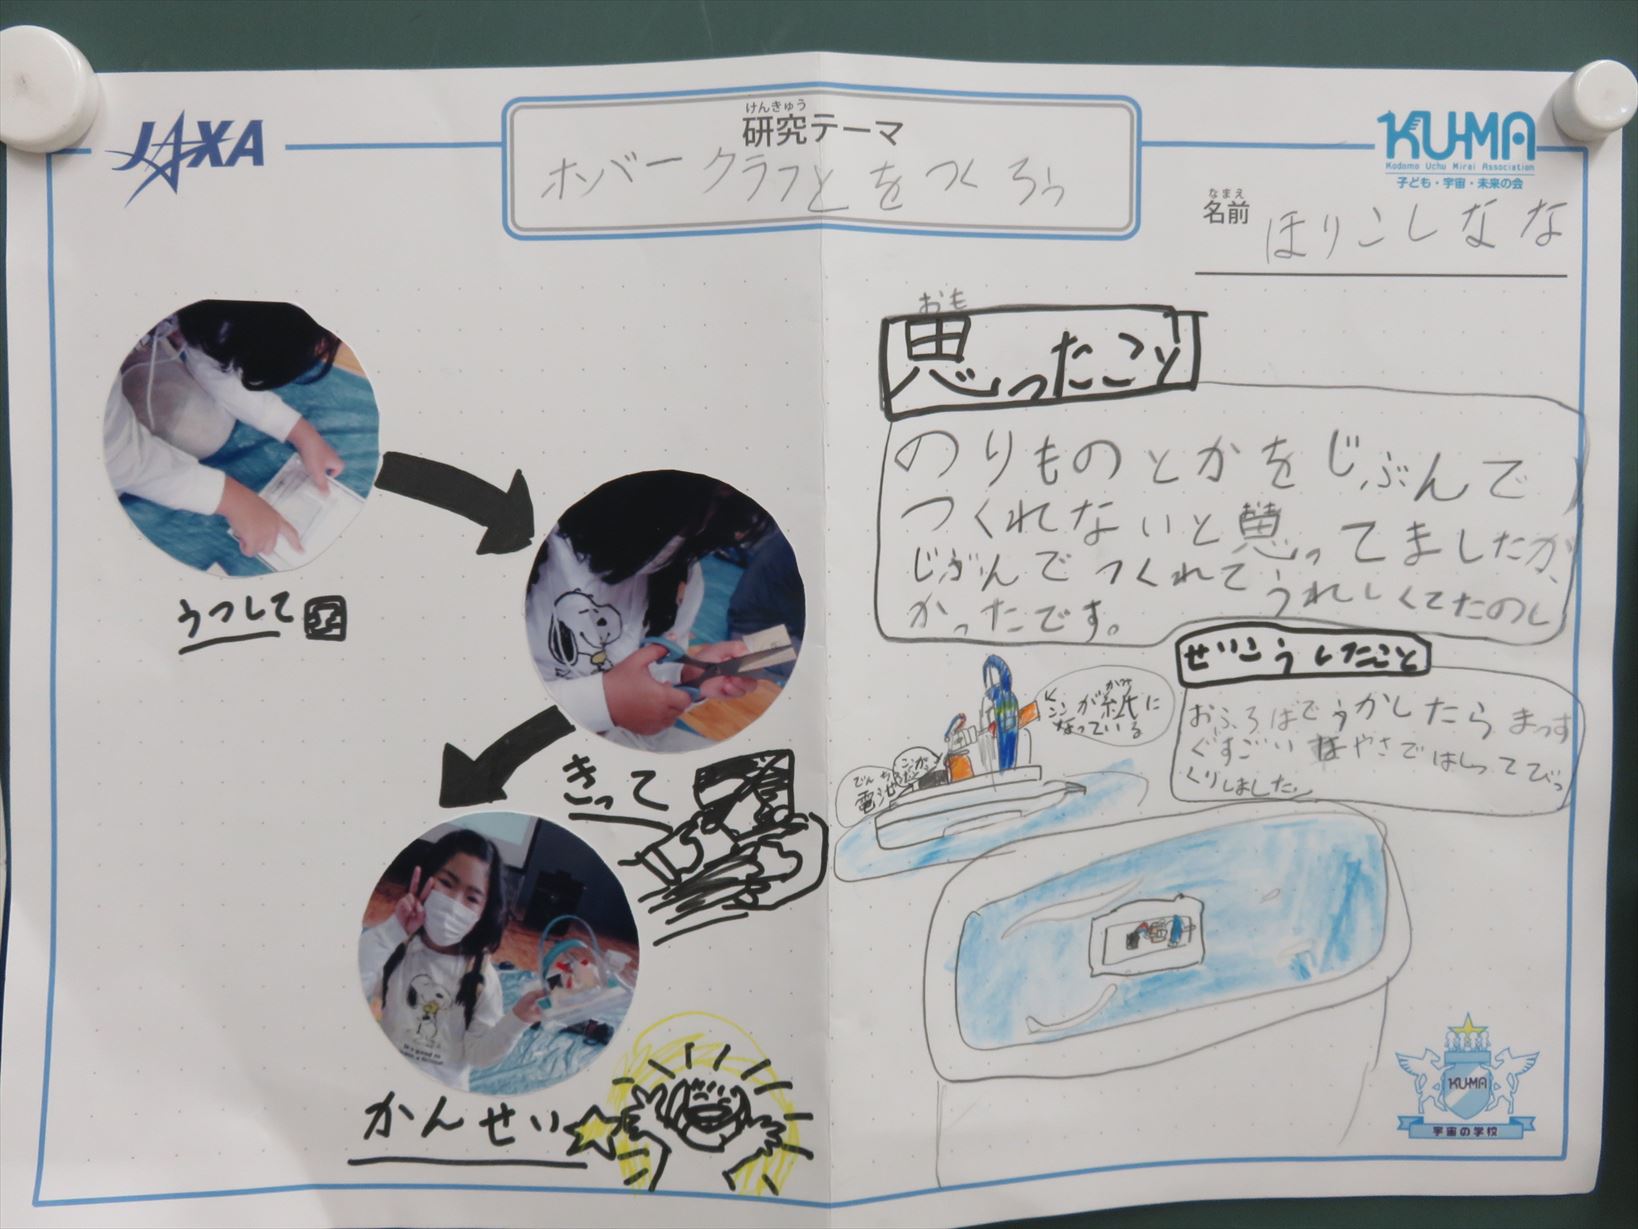 JAXA
けんきゅう
研究テーマ
ホバークラフとをつくろう
KU-MA
Kodomo Uchu Mirai Association
子ども・宇宙・未来の会
なまえ
名前
ほりこしなな
うつして
きって
かんせい
おも
思ったこと
のりものとかをじぶんで
つくれないと思ってましたが、
じぶんでつくれてうれしくてたのし
かったです。
せいこうしたこと
おふろばでうかしたらまっす
ぐすごいはやさではしってびっ
くりしました
かみ
ここが紙に
なっている
でんち
電池
KU-MA
宇宙の学校